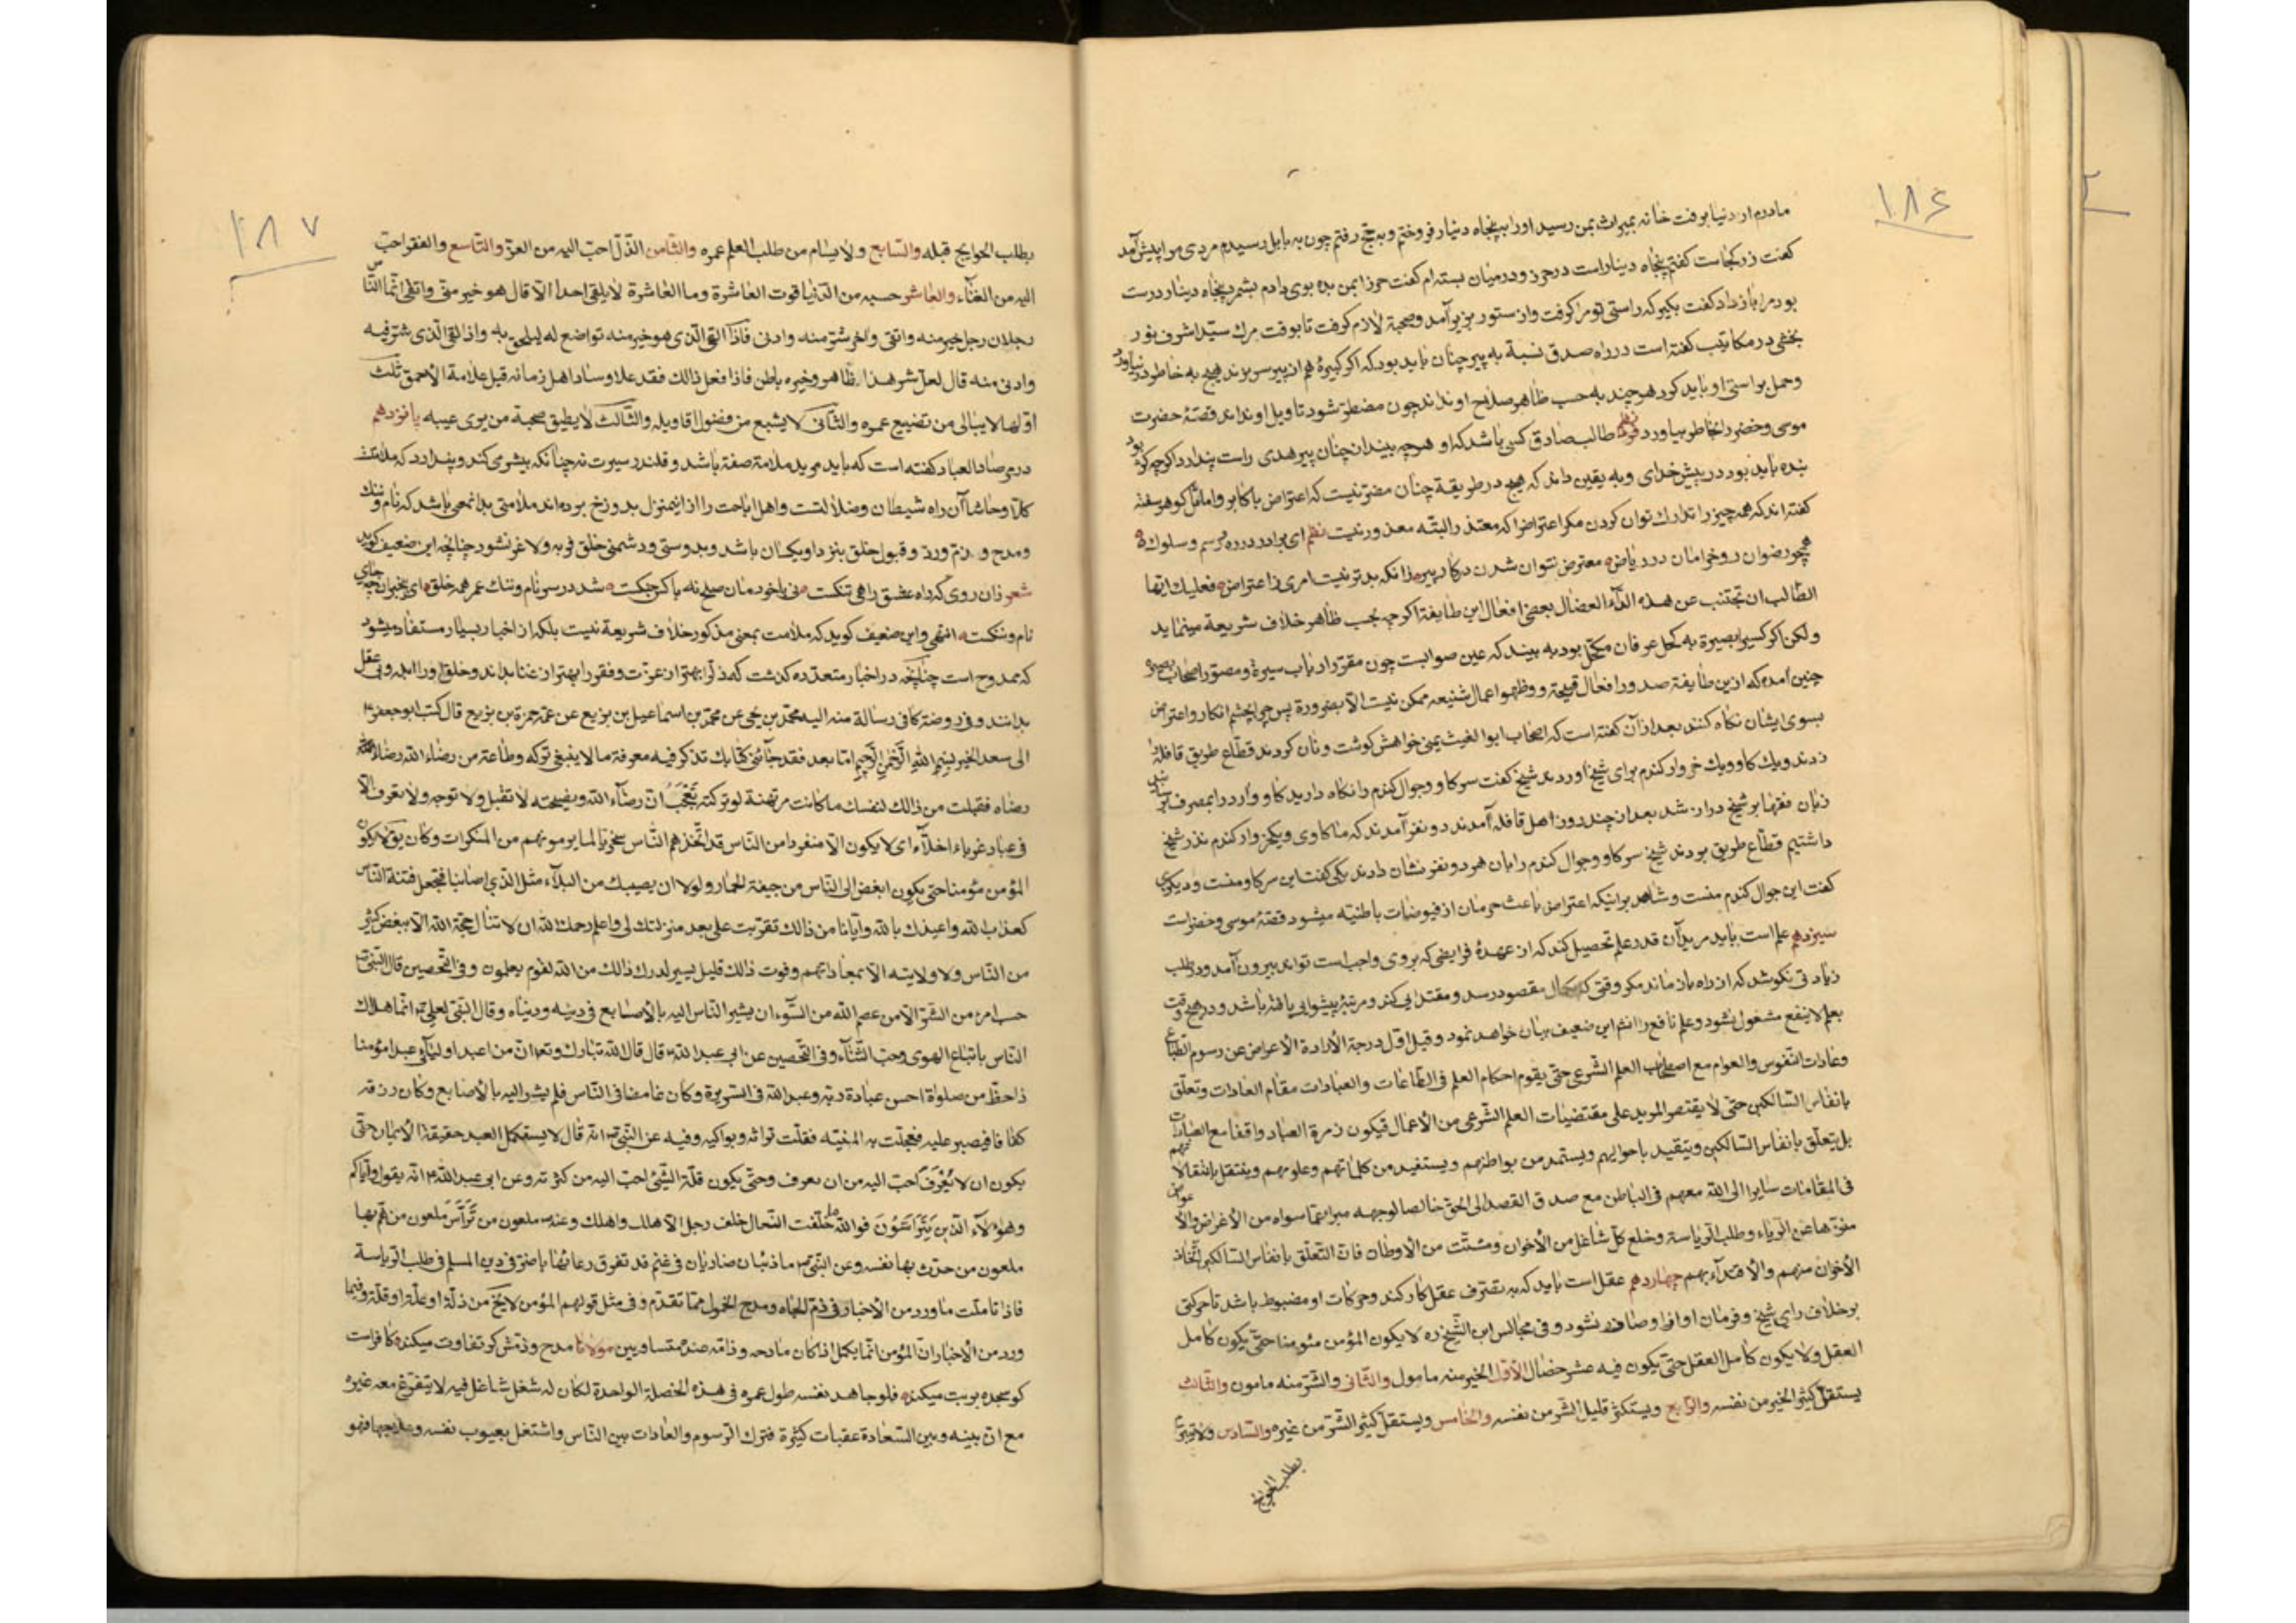 ۱۸۶
مادرم از دنیا برفت خانه بمیراث بمن رسید او را به پنجاه دینار فروختم و به حج رفتم چون به بابل رسیدم مردی مرا پیش آمد
گفت زر کجاست گفتم پنجاه دینار است در حرز و در میان بسته ام گفت حرز ایمن بده بوی دادم بشمرد پنجاه دینار درست
بود مرا باز داد گفت بگیر که راستی تو مرا گرفت و از ستور بزیر آمد و صحبة لازم گرفت تا بوقت مرگ سید اشرف نور
بخشی در مکاتیب گفته است در راه صدق نسبة به پیر چنان باید بود که اگر کبیرهٔ هم از پیر سر بزند هیچ به خاطر در نیاورد
و حمل بر راستی او باید کرد هر چند به حسب ظاهر صلاح او نداند چون مضطر شود تاویل او نداند قصهٔ حضرت
موسی و خضر را بخاطر بیاورد طالب صادق کسی باشد که او هر چه بیند از چنان پیر هدی راست پندارد اگر چه کژ بود
بنده باید بود در پیش خدای و به یقین داند که هیچ در طریقة چنان مضر نیست که اعتراض با کابر و اماثل گوهر سفته
گفته اند که همه چیز را تدارک توان کردن مگر اعتراض را که معتذر را البته معذور نیست نظم ای برادر در ره رسم و سلوک
همچو رضوان رو خرامان در ریاض معترض نتوان شدن در کار پیر زانکه بدتر نیست امری ز اعتراض فعلیک ایها
الطالب ان تجتنب عن هذه الداء العضال بعضی افعال این طایفة اگر چه بحسب ظاهر خلاف شریعة مینماید
و لکن اگر کسی را بصیرة به کحل عرفان مکحل بود به بیند که عین صوابست چون مقرر ارباب سیرة و مصور اصحاب بصیره
چنین آمده که از این طایفة صدور افعال قبیحه و ظهور اعمال شنیعه ممکن نیست الا بضرورة پس چرا بچشم انکار و اعتراض
بسوی ایشان نگاه کنند بعد از آن گفته است که اصحاب ابو الغیث یمنی خواهش گوشت و نان کردند قطاع طریق قافله
زدند و یک گاو و یک خروار گندم برای شیخ اوردند شیخ گفت سر گاو و جوال گندم را نگاه دارید گاو و آرد را بمصرف رسانید
زبان فقها بر شیخ دراز شد بعد از چند روز اهل قافله آمدند دو نفر آمدند که ما گاوی و یکخروار گندم نذر شیخ
داشتیم قطاع طریق بردند شیخ سر گاو و جوال گندم را بان هر دو نفر نشان دادند یکی گفت این سر گاو منست و دیگری
گفت این جوال گندم منست و شاهد بر اینکه اعتراض باعث حرمان از فیوضات باطنیه میشود قصهٔ موسی و خضر است
سیزدهم علم است باید مرید آن قدر علم تحصیل کند که از عهدهٔ فرایضی که بر وی واجب است تواند بیرون آمد و در طلب
زیادتی نکوشد که از راه باز ماند مگر وقتی که بکمال مقصود رسد و مقتدایی کند و مرتبهٔ پیشوایی یافته باشد و در هیچ وقت
بعلم لا ینفع مشغول نشود و علم نافع را این ضعیف بیان خواهد نمود و قیل اول درجة الارادة الاعراض عن رسوم الطباع
و عادات النفوس والعوام مع اصطحاب العلم الشرعی حتی یقوم احکام العلم فی الطاعات والعبادات مقام العادات وتعلق
بانفاس السالکین حتی لا یقتصر المرید علی مقتضیات العلم الشرعی من الأعمال فیکون زمرة العباد واقفا مع العبادات
بل یتعلق بانفاس السالکین ویتقید باحوالهم ویستمد من بواطنهم ویستفید من کلماتهم وعلومهم وینتقل بانتقالاتهم
فی المقامات سایرا الی الله معهم فی الباطن مع صدق القصد الی الحق خالصا لوجهه مبرا عما سواه من الأغراض والأعواض
منزها عن الریاء وطلب الریاسة وخلع کل شاغل من الأخوان ومشتت من الأوطان فان التعلق بانفاس السالکین اتخاذ
الأخوان منهم والأقتداء بهم چهاردهم عقل است باید که به تصرف عقل کار کند و حرکات او مضبوط باشد تا حرکتی
بر خلاف رای شیخ و فرمان او از او صادر نشود و فی مجالس ابن الشیخ ره لا یکون المؤمن مئومنا حتی یکون کامل
العقل ولا یکون کامل العقل حتی یکون فیه عشر خصال الأول الخیر منه مامول والثانی والشر منه مامون والثالث
یستقل کثیر الخیر من نفسه والرابع ویستکثر قلیل الشر من نفسه والخامس ویستقل کثیر الشر من غیره والسادس ولا یتبرم
بطلب الحوایج
۱۸۷
بطلب الحوایج قبله والسابع ولا یسام من طلب العلم عمره والثامن الذل احب الیه من العز والتاسع والفقر احب
الیه من الغناء والعاشر حسبه من الدنیا قوت العاشرة وما العاشرة لا یلقی احدا الا قال هو خیر منی واتقی انما الناس
رجلان رجل خیر منه واتقی واخر شر منه وادنی فاذا التقی الذی هو خیر منه تواضع له لیلحق به واذا لقی الذی شر فیه
وادنی منه قال لعل شر هذا ظاهر وخیره باطن فاذا فعل ذالک فقد علا وساد اهل زمانه قیل علامة الأحمق ثلث
اولها لا یبالی من تضییع عمره والثانی لا یشبع من فضول اقاویله والثالث لا یطیق صحبة من یری عیبه پانزدهم
در مرصاد العباد گفته است که باید مرید ملامة صفة باشد و قلندر سیرت نه چنانکه بیشرمی کند و پندارد که ملامتست
کلا و حاشا آن راه شیطان و ضلالتست و اهل اباحت را از این منزل بدوزخ برده اند ملامتی بدانمعی باشد که نام و ننگ
و مدح و ذم و رد و قبول خلق بنزد او یکسان باشد و بدوستی و دشمنی خلق فربه و لاغر نشود چنانچه این ضعیف گوید
شعر زان روی که راه عشق راهی تنگست نی با خودمان صلح نه با کس جنگست شد در سر نام و ننگ عمر همه خلق ای بیخبران چه جای
نام و ننگست انتهی و این ضعیف گوید که ملامت بمعنی مذکور خلاف شریعة نیست بلکه از اخبار بسیار مستفاد میشود
که ممدوح است چنانچه در اخبار متعدده گذشت که ذل را بهتر از عزت و فقر را بهتر از غنا بداند و خلق او را ابله و بی عقل
بدانند و فی روضة کافی رسالة منه الیه محمد بن یحی عن محمد بن اسماعیل بن بزیع عن عمه حمزة بن بزیع قال کتب ابو جعفر
الی سعد الخیر بسم الله الرحمن الرحیم اما بعد فقد جائنی کتابک تذکر فیه معرفة ما لا ینبغی ترکه وطاعة من رضاء الله رضاه
رضاه فقبلت من ذالک لنفسک ما کانت مرتهنة لو ترکته تعجب ان رضاء الله ونصیحته لا تقبل ولا توجد ولا تعرف الا
فی عباد غرباء اخلاء ای لا یکون الا منفردا من الناس قد اتخذهم الناس سخریا لما یرمونهم من المنکرات وکان یق لا یکون
المؤمن مئومنا حتی یکون ابغض الی الناس من جیفة الحمار ولولا ان یصیبک من البلاء مثل الذی اصابنا فتجعل فتنة الناس
کعذاب الله واعیذک بالله وایانا من ذالک تقربت علی بعد منزلتک لی واعلم رحمک الله ان لا تنال محبة الله الا ببغض کثیر
من الناس ولا ولایته الا بمعاداتهم وفوت ذالک قلیل یسیر لدرک ذالک من الله لقوم یعلمون وفی التحصین قال النبی
حسب امرء من الشر الا من عصم الله من السوء ان یشیر الناس الیه بالأصابع فی دینه ودنیاه وقال النبی لعلی انما هلاک
الناس باتباع الهوی وحب الثناء وفی التحصین عن ابی عبد الله قال قال الله تبارک وتعا ان من اعبد اولیائی عبدا مؤمنا
ذا حظ من صلواة احسن عبادة ربه وعبد الله فی السریرة وکان غامضا فی الناس فلم یشر الیه بالأصابع وکان رزقه
کفافا فیصبر علیه فعجلت به المنیه فقلت تراثه وبواکیه وفیه عن النبی انه قال لا یستکمل العبد حقیقة الأیمان حتی
یکون ان لا یعرف احب الیه من ان یعرف وحتی یکون قلة الشئ احب الیه من کثرته وعن ابی عبد الله انه یقول وایاکم
وهؤلاء الذین یترأسون فوالله ما خلفت النعال خلف رجل الا هلک واهلک وعنه ملعون من ترأس ملعون من هم بها
ملعون من حدث بها نفسه وعن النبی ما ذئبان ضاریان فی غنم قد تفرق رعائها باضر فی دین المسلم فی طلب الریاسة
فاذا تاملت ما ورد من الأخبار فی ذم الجاه ومدح الخمول مما تقدم وفی مثل قولهم المؤمن لا یخ من ذلة او علة او قلة وفیما
ورد من الأخبار ان المؤمن انما یکمل اذا کان مادحه وذامه عنده متساویین مولانا مدح و ذمش گر تفاوت میکند کافر است
کو سجده بر بت میکند فلو جاهد نفسه طول عمره فی هذه الخصلة الواحدة لکان له شغل شاغل فیه لا یتفرغ معه غیره
مع ان بینه وبین السعادة عقبات کثیرة فترک الرسوم والعادات بین الناس واشتغل بعیوب نفسه وعلاجها فهو